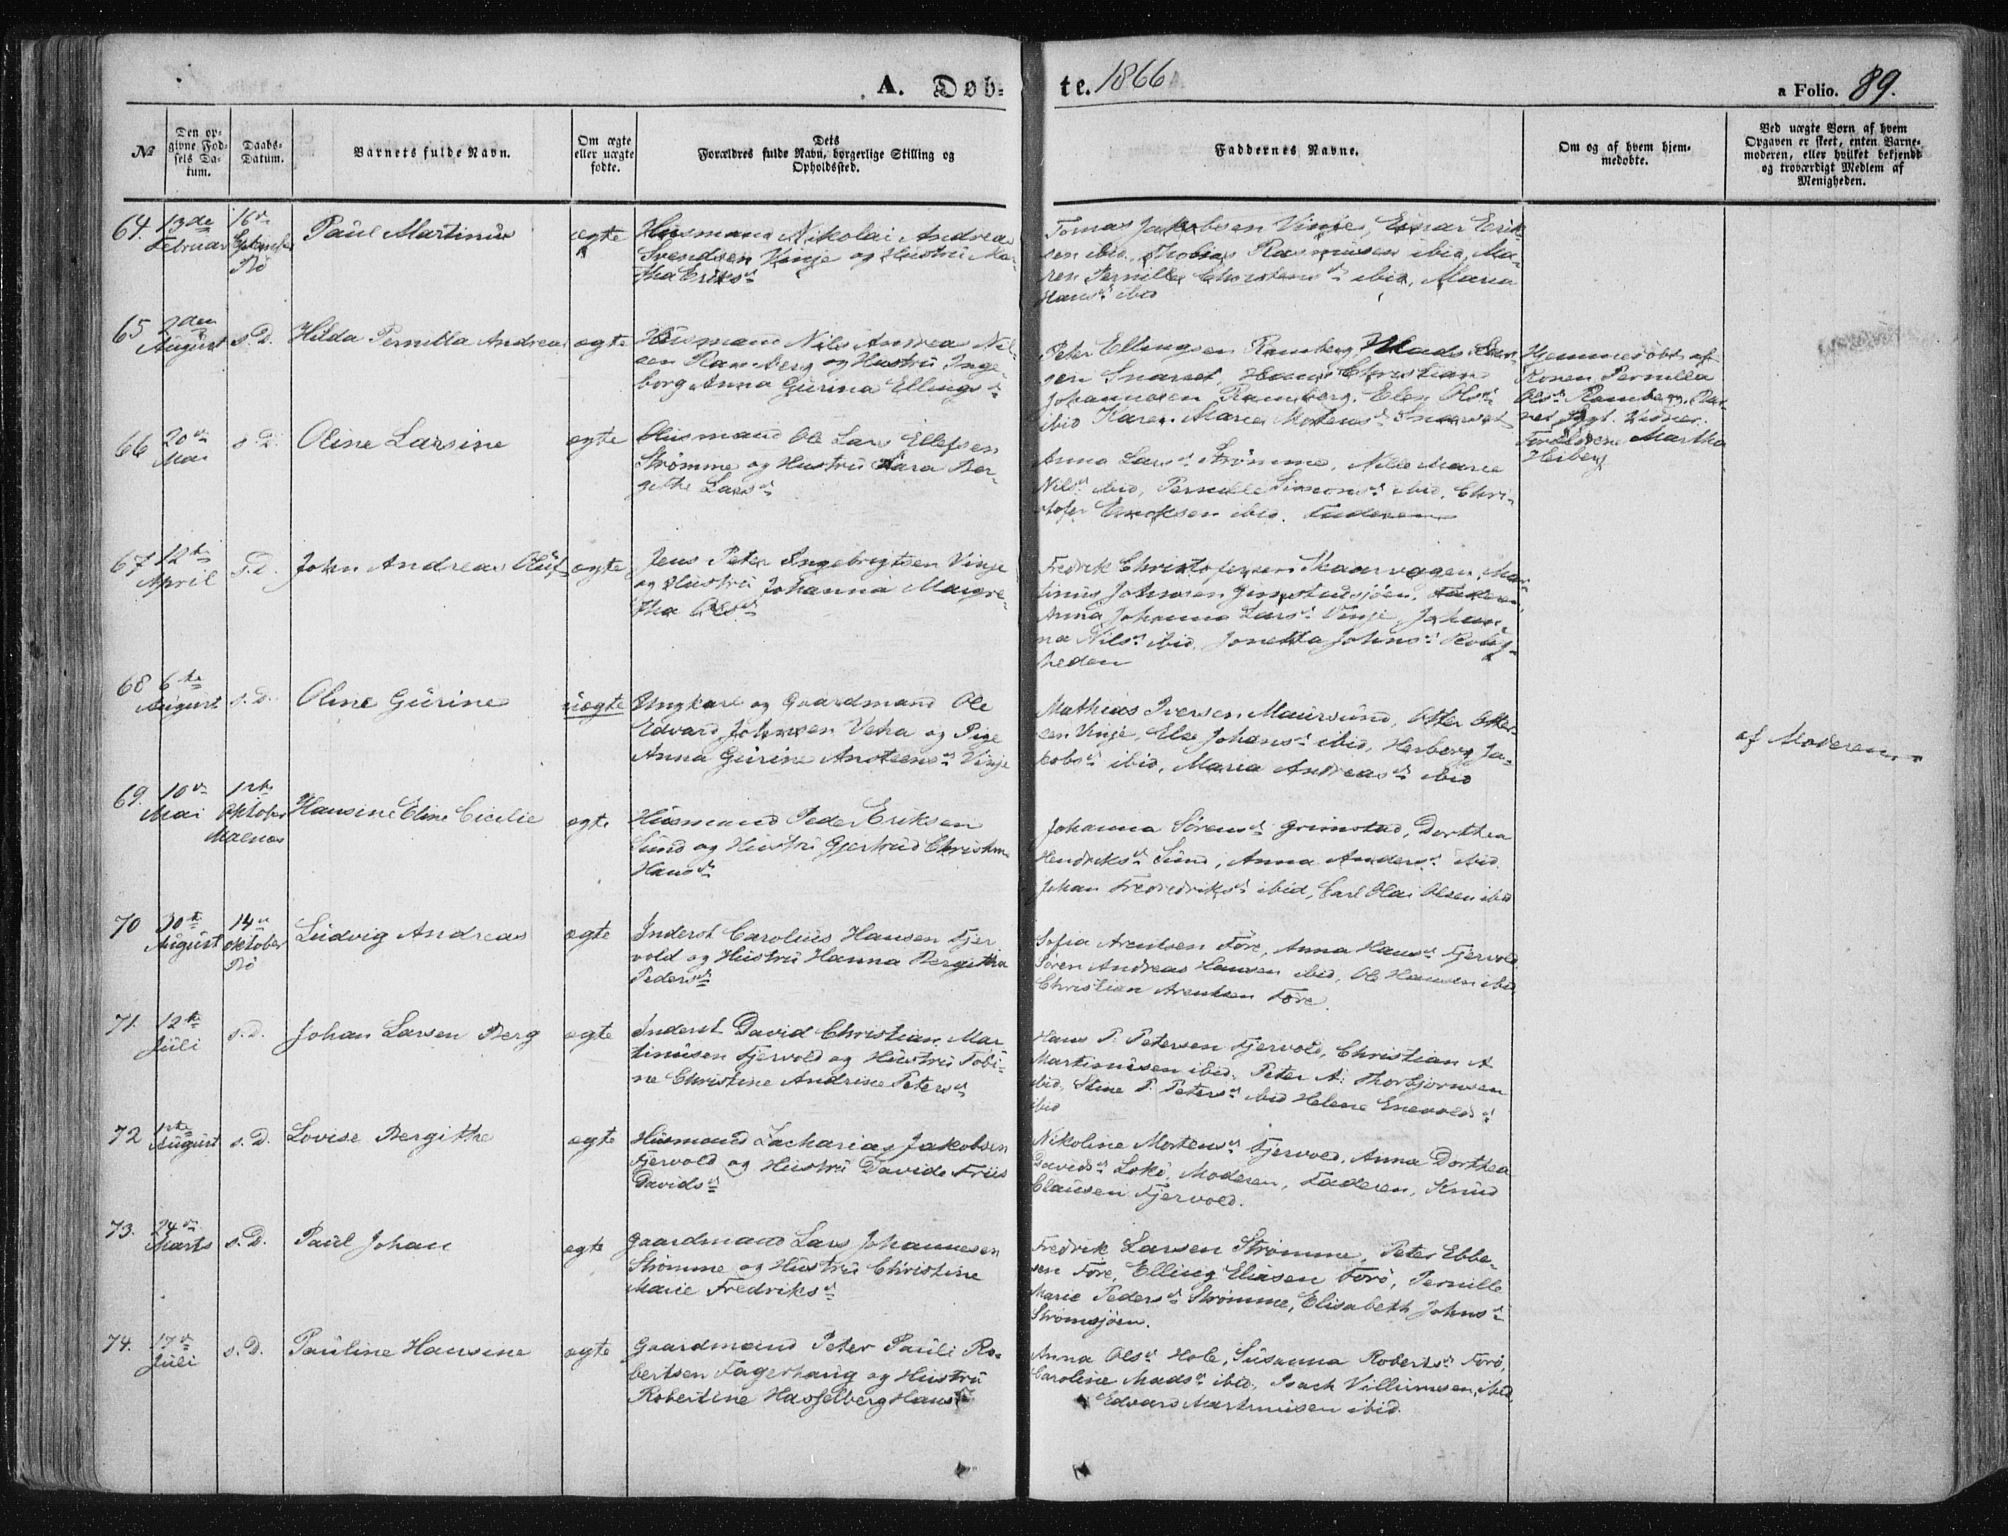 A. Døb-
te. 1866
a Folio. 89.
№
Den op-
givne Fød-
sels Da-
tum.
Daabs-
Datum.
Barnets fulde Navn.
Om ægte
eller uægte
fødte.
Dets
Forældres fulde Navn, borgerlige Stilling og
Opholdssted.
Faddernes Navne.
Om og af hvem hjem-
medøbte.
Ved uægte Børn af hvem
Opgaven er skeet, enten Barne-
moderen, eller hvilket bekjendt
og troværdigt Medlem af
Menigheden.
64. 13de
Februar
16de
Septembr
Bø
Paul Martinus
ægte
Husmand Nikolai Andreas
Svendsen Vinje og Hustru Mar-
tha Eriksd
Tomas Jakobsen Vinje, Einar Erik-
sen ibid, Thobias Rasmusen ibid, Ma-
ren Pernille Thorstensd ibid, Maria
Hansd ibid
65
2den
August
s.D.
Hilda Pernilla Andrea
ægte
Husmand Nils Andreas Nil-
sen Ramberg og Hustru Inge-
borg Anna Gurina Ellingsd
Peter Ellingsen Ramberg, Mads Lar-
sen Snarset Hans Christian
Johannesen Ramberg, Elen Olsd
ibid Karen Maria Mortensd Snarset
Hjemmedøbt af
Konen Pernilla
Olsd Ramberg, Bar-
net sygt. Vidner:
Forældrene Martha
Heiberg
66
20de
Mai
s.D.
Oline Larsine
ægte
Husmand Ole Lars Ellefsen
Strømme og Hustru Sara Ber-
githe Larsd
Anna Larsd Strømme, Nille Marie
Nilsd ibid, Pernille Simonsd ibid, Chri-
stofer Eriksen ibid. Faderen
67
12te
April
s.D.
John Andreas Oluf
ægte
Jens Peter Ingebrigtsen Vinje
og Hustru Johanna Margre-
tha Olsd
Fredrik Christofersen Skaarvagen, Mar-
tinus Johnsen Grimstadsjøen, Faderen
Anna Johanna Larsd Vinje, Johan-
na Nilsd ibid, Jonetta Johnsd Rolig-
heden
68
6te
August
s.D.
Oline Gurine
uægte
Ungkarl og Gaardmand Ole
Edvard Johnsen Veha og Pige
Anna Gurine Ansteensd Vinje
Mathias Iversen Maursund, Otter Otter-
sen Vinje, Else Johansd ibid, Herborg Ja-
kobsd ibid, Maria Andreasd ibid
af Moderen
69.
10de
Mai
1ste
Oktober
Malnes
Hansine Eline Cicilie
ægte
Husmand Peder Eriksen
Sund og Hustru Gjertrud Christine
Hansd
Johanna Sørensd Grimstad, Dorthea
Hendriksd Sund, Anna Andersd ibid
Johan Fredriks ibid, Carl Olai Olsen ibid
70
30te
August
14de
Oktober
Bø
Ludvig Andreas
ægte
Inderst Carolius Hansen Fjer
vold og Hustru Hanna Bergitha
Pedersd
Sofia Arentsen Føre, Anna Hansd Fjervold
Søren Andreas Hansen ibid, Ole Hansen ibid
Christian Arentsen Føre
71.
12te
Juli
s.D.
Johan Larsen Berg
ægte
Inderst David Christian Mar-
tinusen Fjervold og Hustru Tobi-
ne Christine Andrine Petersd
Hans P. Petersen Fjervold, Christian A
Martinusen ibid, Peter A. Thorbjørnsen
ibid, Stine P. Petersd ibid Helene Enevoldsd
ibid
72
1ste
August
s.D.
Lovise Bergithe
ægte
Husmand Zacharias Jakobsen
Fjervold og Hustru Davide Friis
Davidsd
Nikoline Mortensd Fjervold, Anna Dorthea
Davidsd Lokø, Moderen, Faderen, Knud
Clausen Fjervold.
73.
24de
Marts
s.D.
Paul Johan
ægte
Gaardmand Lars Johannesen
Strømme og Hustru Christine
Marie Fredriksd
Fredrik Larsen Strømme, Peter Ebbe-
sen Føre, Elling Eliasen Førø, Pernille
Marie Pedersd Strømme, Elisabeth Johnsd
Strømsjøen.
74.
17de
Juli
s.D.
Pauline Hansine
ægte
Gaardmand Peter Pauli Ro-
bertsen Fagerhaug og Hustru
Robertine Hasselberg Hansd
Anna Olsd Hole, Susanna Robertsd Førø,
Caroline Madsd ibid, Isach Villumsen ibid,
Edvard Martinusen ibid.